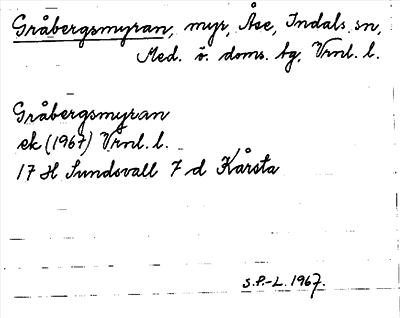 Gråbergsmyran, myr, Åse, Indals sn,
Med. v. doms. tg, Vrnl. l.
Gråbergsmyran
ek (1967) Vrnl. l.
17 H Sundsvall 7 d Kårsta
S.P.-L. 1967.